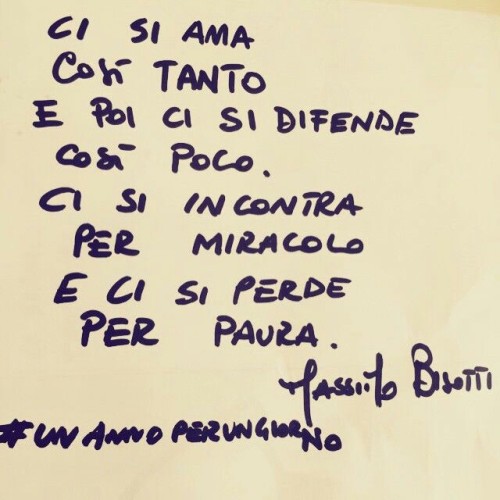 CI SI AMA
COSÌ TANTO
E POI CI SI DIFENDE
COSÌ POCO.
CI SI INCONTRA
PER MIRACOLO
E CI SI PERDE
PER PAURA.
MASSIMO BISOTTI
#UNANNOPERUNGIORNO